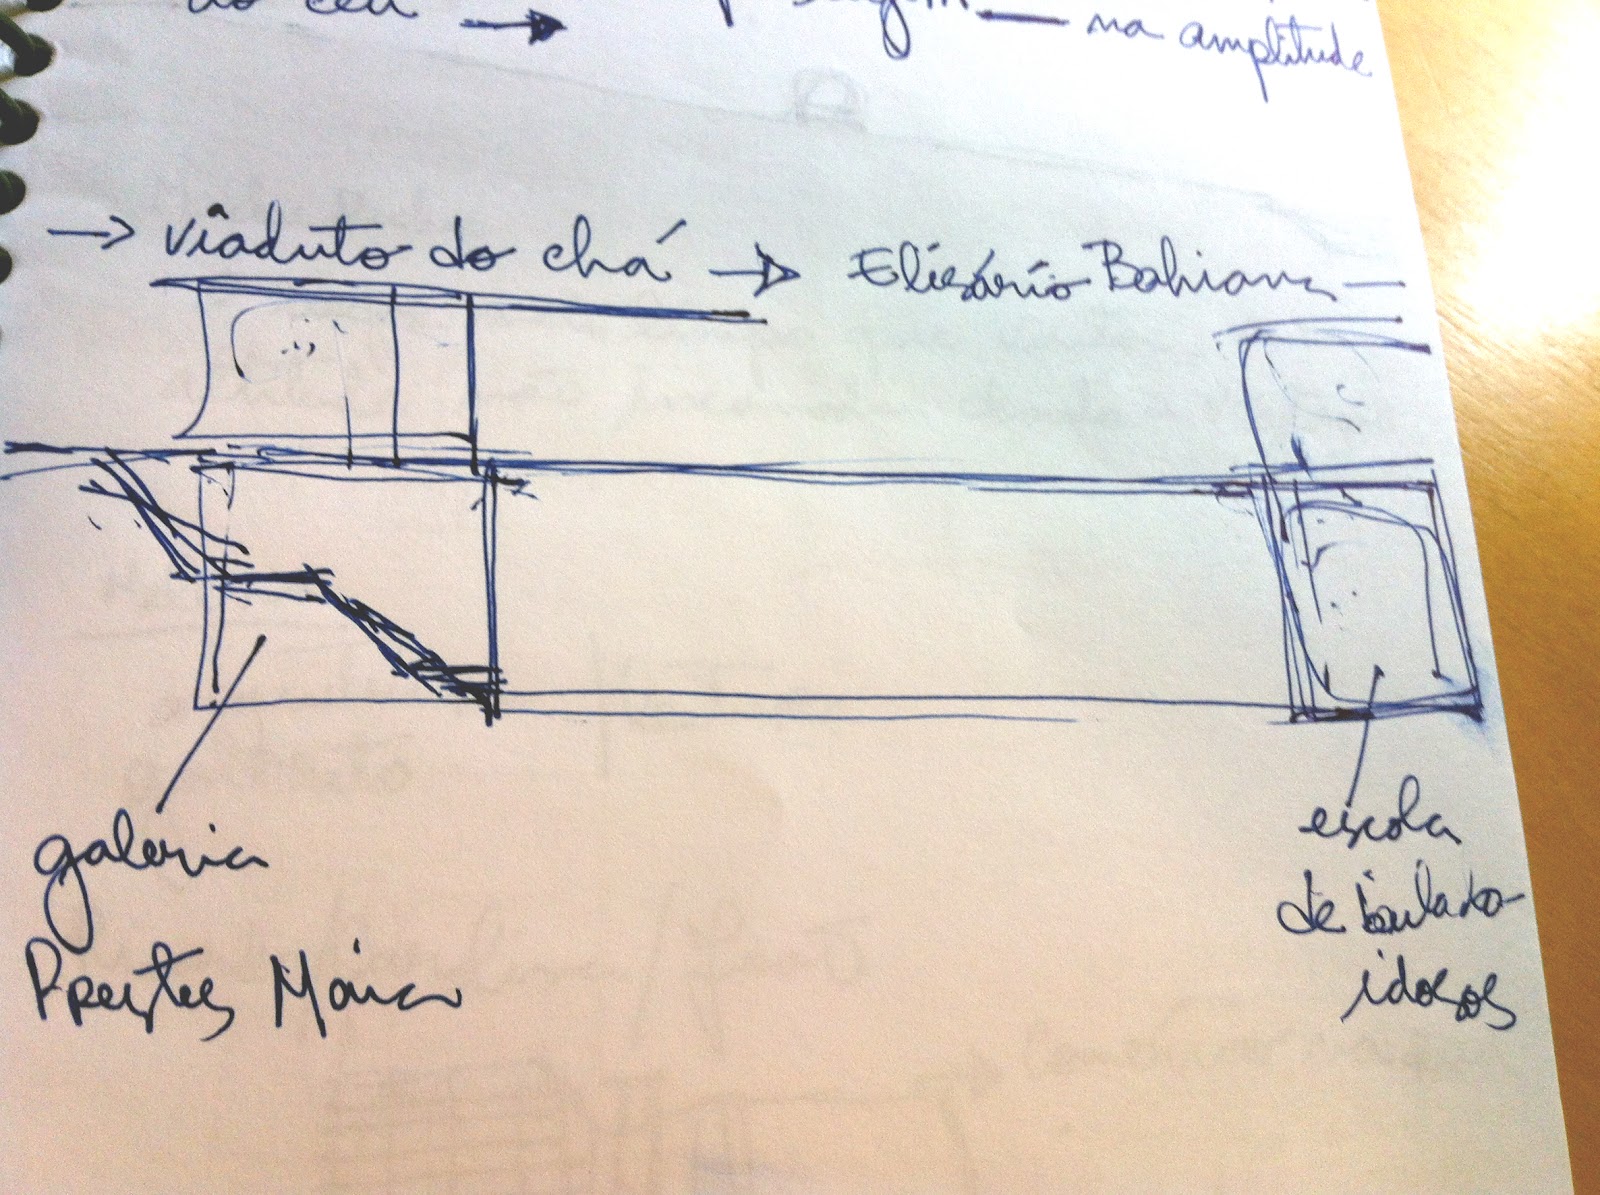 ao céu → → na amplitude
→ viaduto do chá → Elisário Bahiana —
galeria
Prestes Maia
escola
de bailado
idosos